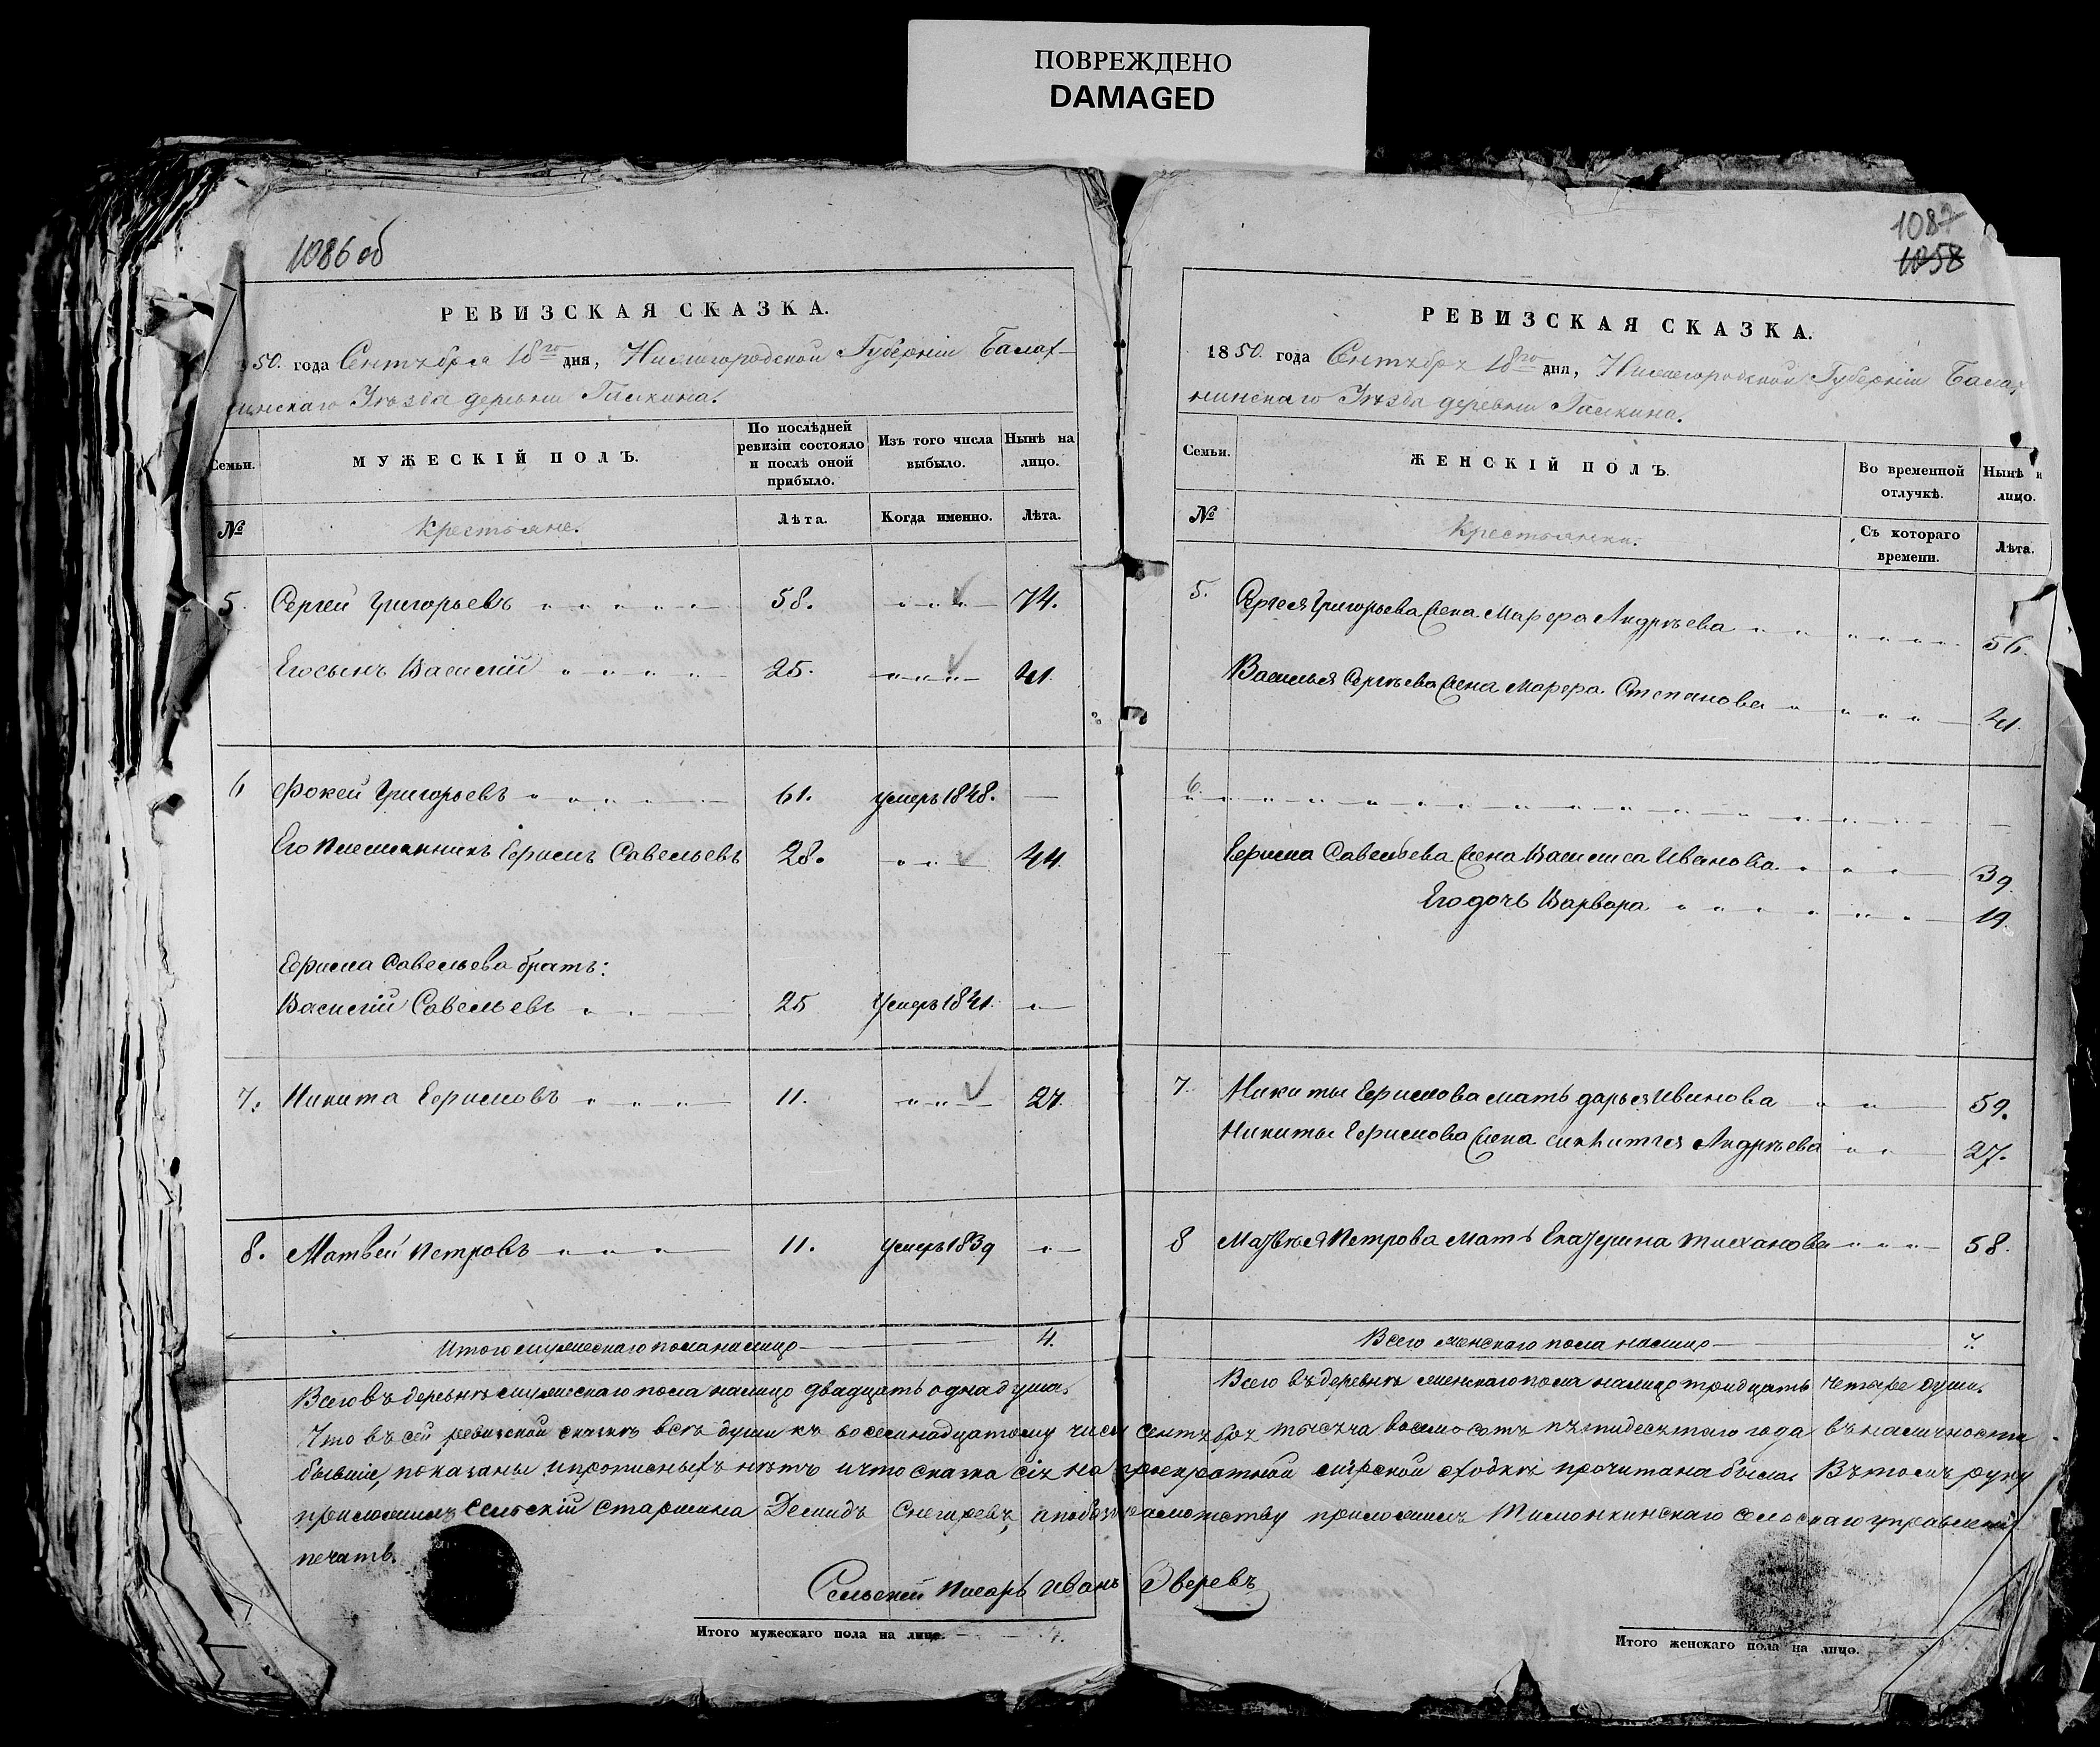 ПОВРЕЖДЕНО
DAMAGED
1086 об
РЕВИЗСКАЯ СКАЗКА.
50. года Сентября 18го дня, Нижегородской Губерніи Балах-
нинскаго Уѣзда деревни Галкина.
Семьи.
МУЖЕСКІЙ ПОЛЪ.
По послѣдней ревизіи состояло и послѣ оной прибыло.
Изъ того числа выбыло.
Нынѣ на лицо.
№
Крестьяне.
Лѣта.
Когда именно.
Лѣта.
5. Сергей Григорьевъ 58. 74.
Его сынъ Василій 25. 41.
6 Фокей Григорьевъ 61. умеръ 1848. —
Его Племянникъ Ефимъ Савельевъ 28. 44.
Ефима Савельева братъ:
Василій Савельевъ 25 Умеръ 1841. —
7. Никита Ефимовъ 11. 27.
8. Матвей Петровъ 11. умеръ 1839 —
Итого мужескаго пола налицо 4.
Всего въ деревнѣ мужескаго пола налицо двадцать одна душа.
1087
1058
РЕВИЗСКАЯ СКАЗКА.
1850. года Сентября 18го дня, Нижегородской Губерніи Балах
нинскаго Уѣзда деревни Галкина.
Семьи.
ЖЕНСКІЙ ПОЛЪ.
Во временной отлучкѣ.
Нынѣ н лицо.
№
Крестьянки.
Съ котораго времени.
Лѣта.
5. Сергея Григорьева жена Марфа Андрѣева 56.
Василья Сергѣева жена Марфа Степанова 41.
6. —
Ефима Савельева жена Василиса Иванова 39.
Его дочь Варвара 19.
7. Никиты Ефимова мать дарья Иванова 59.
Никиты Ефимова жена Андрѣева 27.
8 Матвѣя Петрова Мать Екатерина 58.
Всего женскаго пола налицо 7.
Всего въ деревнѣ женскаго пола налицо тридцать четыре души.
Что въ сей ревизской сказкѣ всѣ души къ восемнадцатому числу сентября тысяча восемосотъ пятидесятаго года въ наличности
бывшіе, показаны и прописныхъ нѣтъ и что сказка сія на трекратной мірской сходкѣ прочитана была. Въ томъ руку
приложилъ Сельскій Старшина Демидъ Снегиревъ, а по безграмотству приложилъ Тимонкинскаго сельскаго управленія
печать.
Сельской Писарь Иванъ Зверевъ
Итого мужескаго пола на лицо. 4.
Итого женскаго пола на лицо.